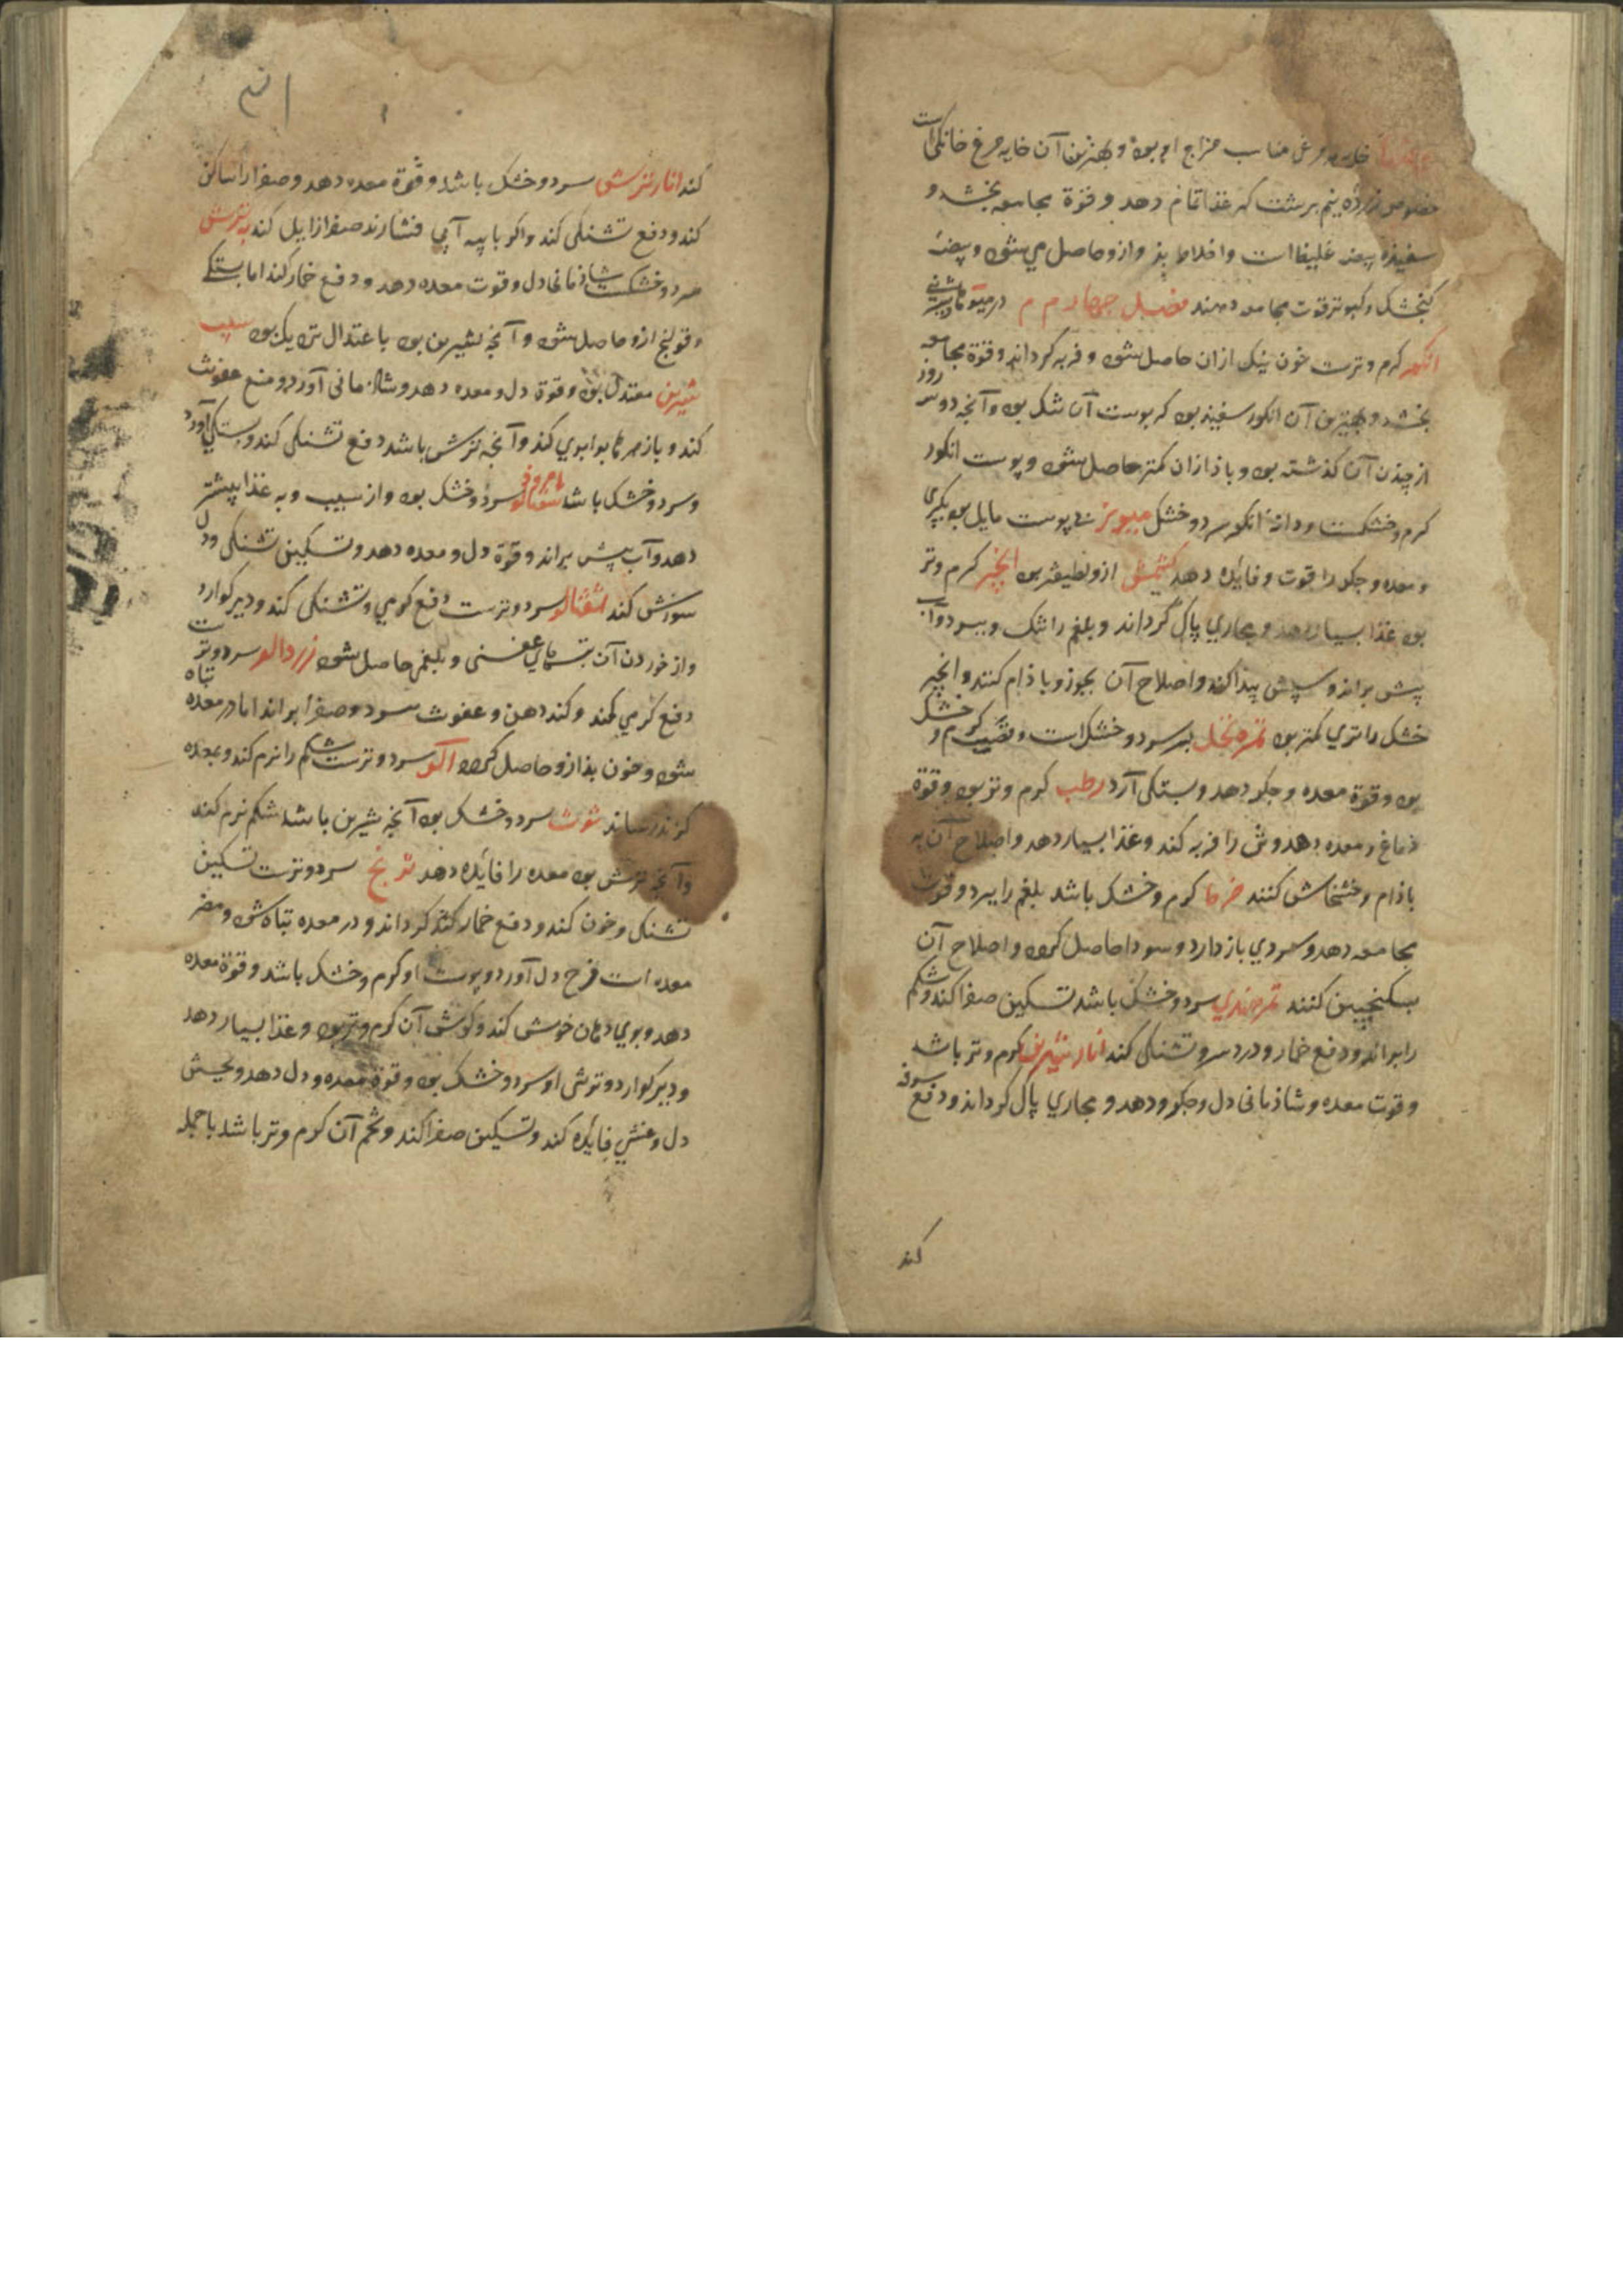 خایه هر مرغی مناسب مزاج او بود و بهترین آن خایه مرغ خانگی است
خصوص زرده نیم برشت که غذا تمام دهد و قوة مجامعه بخشد و
سفیذه بیضه غلیظ است و اخلاط بذ وازو حاصل می شود و بیضه
کنجشک و کبوتر قوت مجامعه دهند فصل چهارم م در میوهای
انکور کرم و ترست خون نیک ازان حاصل شود و فربه کرداند و قوة مجامعه
بخشد و بهترین آن انکور سفیذ بود که پوست آن تنک بود و آنچه دو سه روز
از چیذن آن کذشته بود و باذ ازان کمتر حاصل شود و پوست انکور
کرم و خشکست و دانه انکور سرد و خشک میویز بی پوست مایل بود بکرمی
و معده و جکر را قوت و فایده دهد کشمش ازو لطیفتر بود انجیر کرم وتر
بود غذا بسیار دهد و مجاری پاک کرداند و بلغم را تنک و ببرد و آب
پشت براند و سپش پیذا کند و اصلاح آن بجوز و باذام کنند و انجیر
خشک را تری کمتر بود ثمره نخل بسر سرد و خشک است و قصب کرم و خشک
بود و قوة معده و جکر دهد و بستکی آرد رطب کرم و تر بود و قوة
دماغ و معده دهد و تن را فربه کند و غذا بسیار دهد و اصلاح آن به
باذام و خشخاش کنند خرما کرم و خشک باشد بلغم را ببرد و قوت
مجامعه دهد و سردی باز دارد و سودا حاصل کند و اصلاح آن
بسکنجبین کنند تمر هندی سرد و خشک باشد تسکین صفرا کند و شکم
را براند و دفع خمار و درد سر و تشنکی کند انار شیرین کرم و تر باشد
و قوت معده و شاذمانی دل و جکر دهد و مجاری پاک کرداند و دفع سرفه
کند
کند انار ترش سرد و خشک باشد و قوة معده دهد و صفرا را ساکن
کند و دفع تشنکی کند و اکر با پیه آبی فشارند صفرا زایل کند به ترش
سرد و خشکست شاذمانی دل و قوت معده دهد و دفع خمار کند اما بستکی
و قولنج ازو حاصل شود و آنچه شیرین بود باعتدال نزیک بود سیب
شیرین معتدل بود و قوة دل و معده دهد و شاذمانی آورد و منع عفونت
کند و بازهرها برابری کند و آنچه ترش باشد دفع تشنکی کند و بستکی آورد
و سرد و خشک باشد امرود سرد و خشک بود و از سیب و به غذا بیشتر
دهد و آب پشت براند و قوة دل و معده دهد و تسکین تشنکی و دل
سوزش کند شفتالو سرد و ترست دفع کرمی و تشنکی کند و دیر کوارد
و از خوردن آن تبهای عفنی و بلغمی حاصل شود زردالو سرد و ترست
دفع کرمی کند و کند دهن و عفونت ببرد و صفرا براند اما در معده تباه
شود و خون بذ ازو حاصل کردد آلو سرد و ترست شکم را نرم کند و بمعده
کزند رساند توت سرد و خشک بود آنچه شیرین باشد شکم نرم کند
و آنچه ترش بود معده را فایده دهد ترنج سرد و ترست تسکین
تشنکی و خون کند و دفع خمار کند کرداند و در معده تباه شود و مضر
معده است فرح دل آورد و پوست او کرم و خشک باشد و قوة معده
دهد و بوی دهان خوش کند و کوشت آن کرم و تر بود و غذا بسیار دهد
و دیر کوارد و ترشی او سرد و خشک بود و قوة معده و دل دهد و بجهش
دل و غشی فایده کند و تسکین صفرا کند و تخم آن کرم و تر باشد باجمله